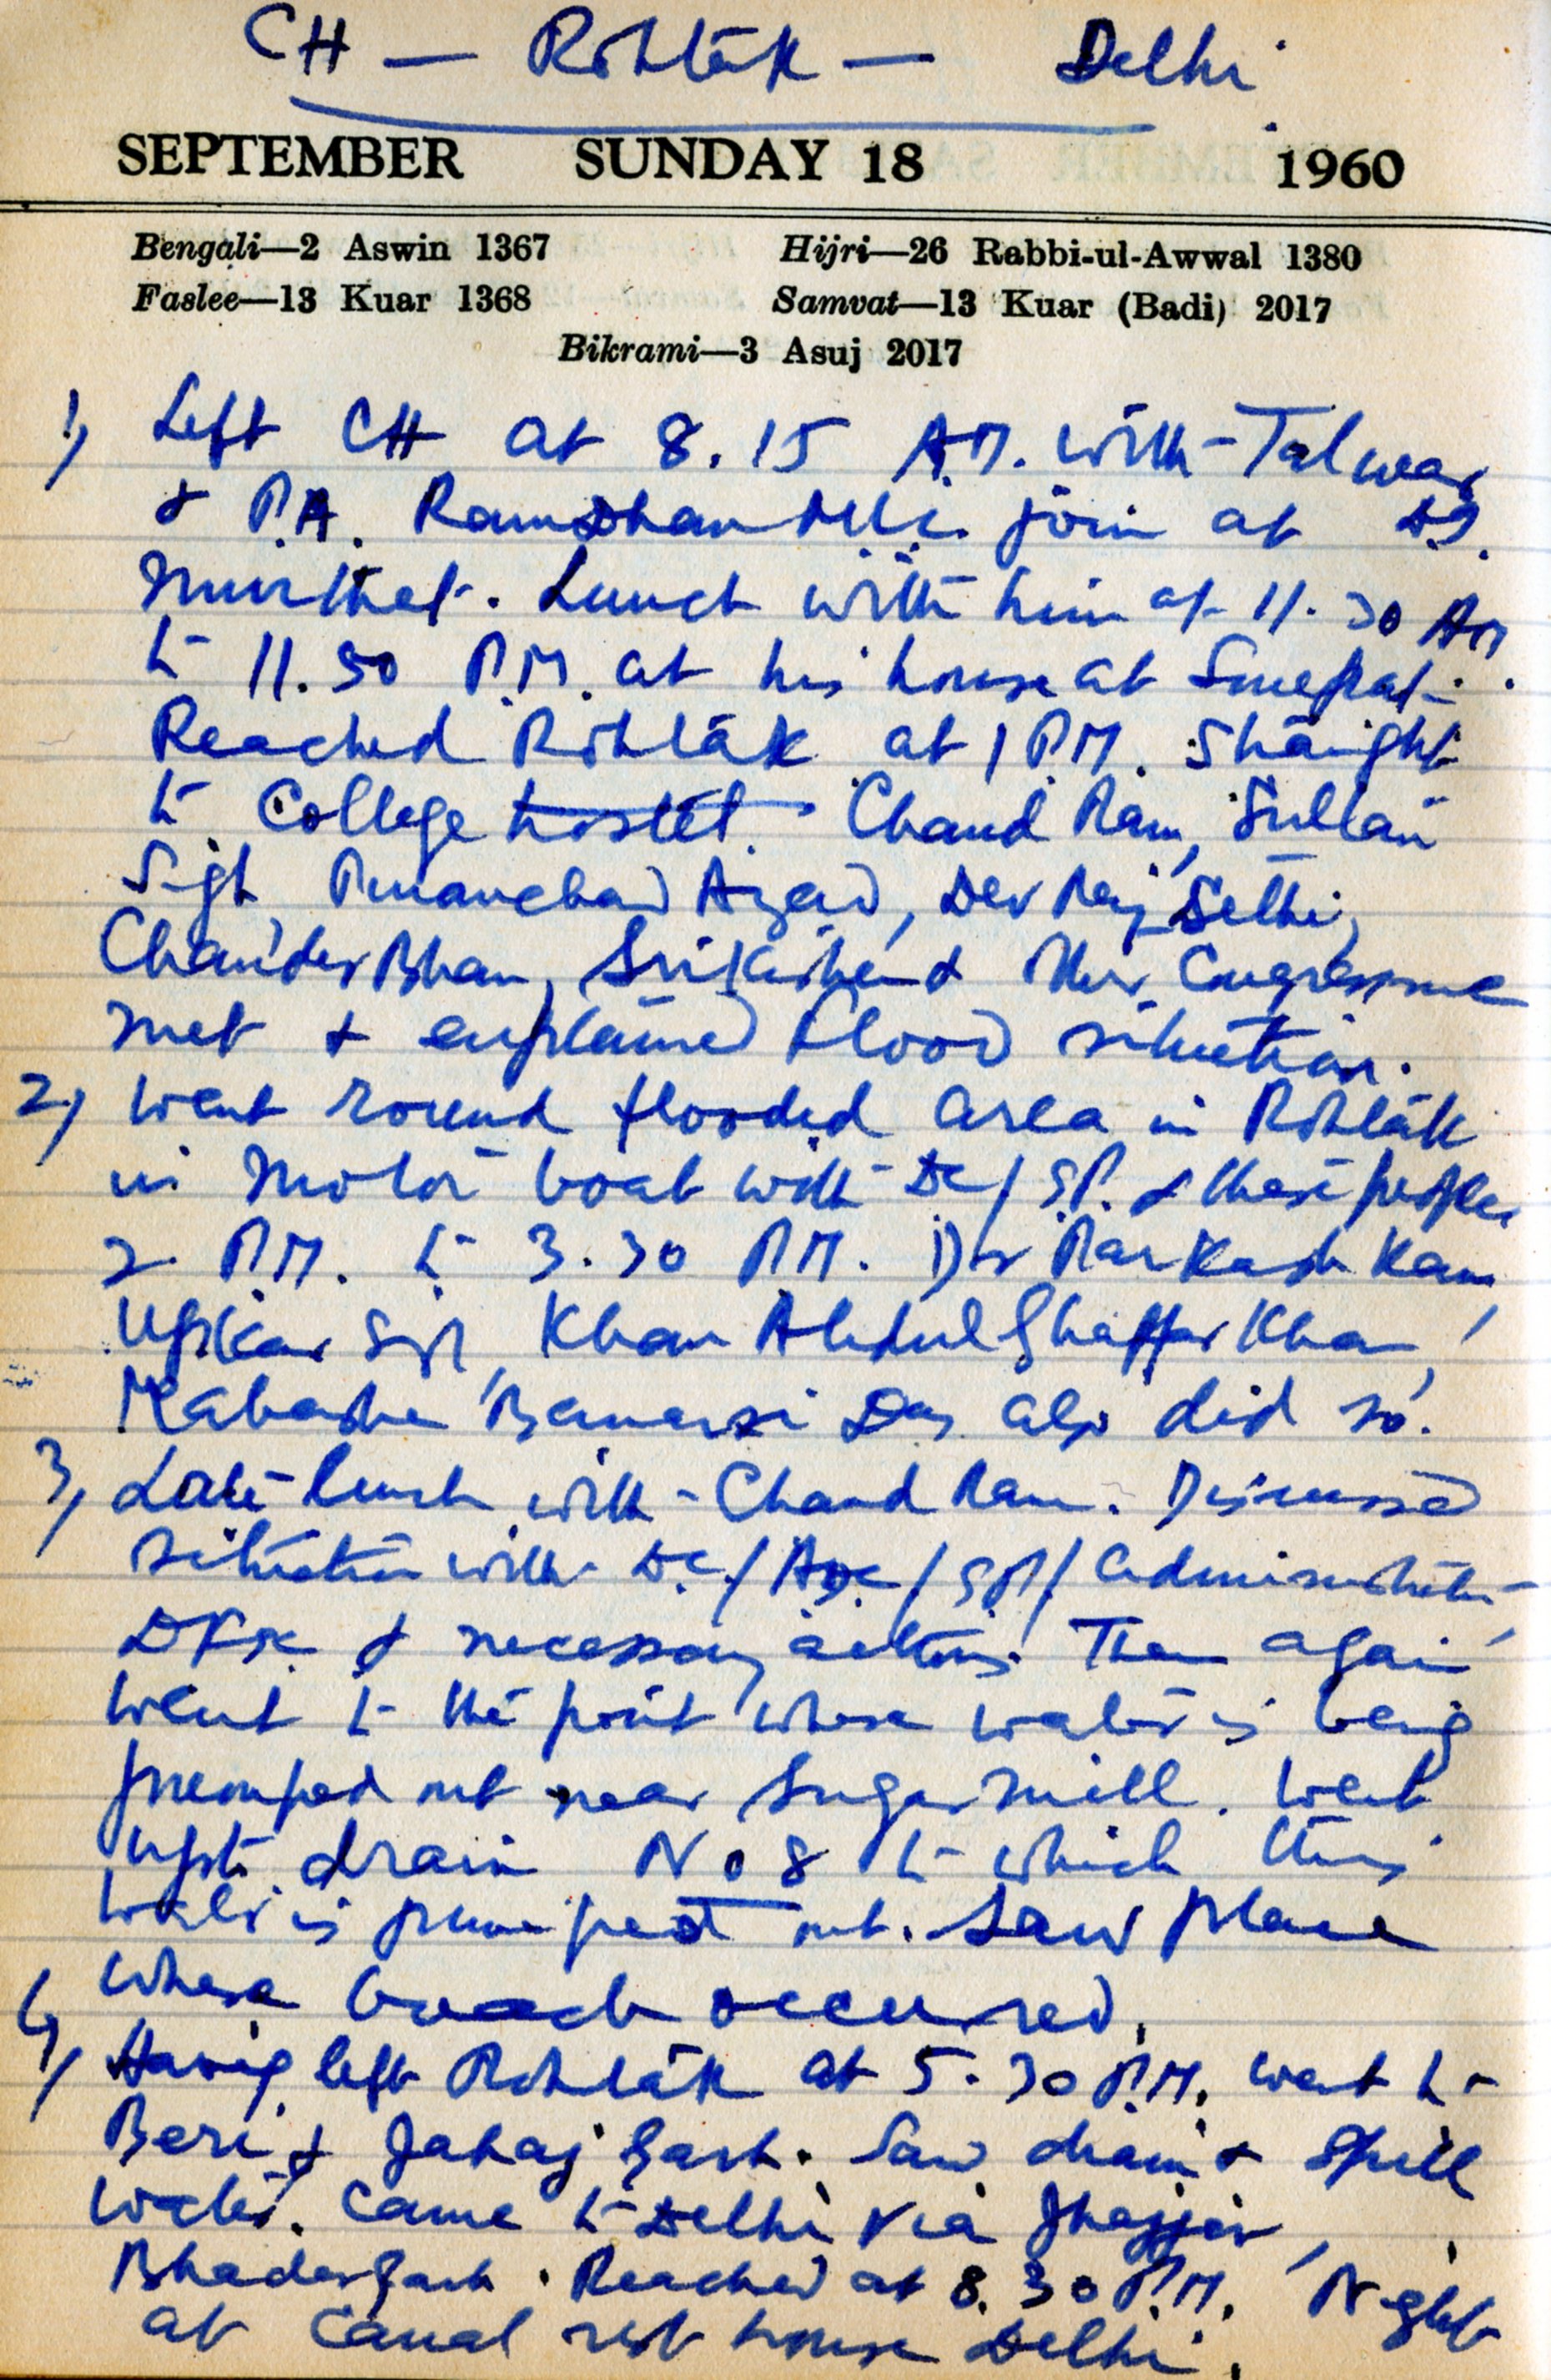 CH — Rohtak — Delhi
SEPTEMBER SUNDAY 18 1960
Bengali—2 Aswin 1367 Hijri—26 Rabbi-ul-Awwal 1380
Faslee—13 Kuar 1368 Samvat—13 Kuar (Badi) 2017
Bikrami—3 Asuj 2017
1, Left CH at 8.15 A.M. with Talwar
& P.A. Ramdhan join at
Murthal. Lunch with him at 11.30 AM
to 11.50 P.M. at his house at Sonepat.
Reached Rohtak at 1 P.M. Straight
to College hostel. Chand Ram, Sultan
Sigh Azad, Dev Raj Sethi,
Chander Bhan, Srikishen & other Congressme
met & explained flood situation.
2, Went round flooded area in Rohtak
in Motor boat with DC/SP. & these peoples
2 P.M. to 3.30 P.M. Dr Parkash Kaur,
Khan Abdul Ghaffar Khan,
Banarsi Das also did so.
3, Late lunch with Chand Ram. Discussed
situation with D.C./ADC/SP/
& necessary action. Then again
went to the point where water is being
pumped out near Sugar mill. Went
upto drain No 8 to which this
water is pumped out. Saw place
where breach occurred.
4, Having left Rohtak at 5.30 P.M. went to
Beri & Jahaj Garh. Saw drain & spill
water. Came to Delhi via Jhajjar,
BhadarGarh. Reached at 8.30 P.M. Night
at Canal rest house Delhi.